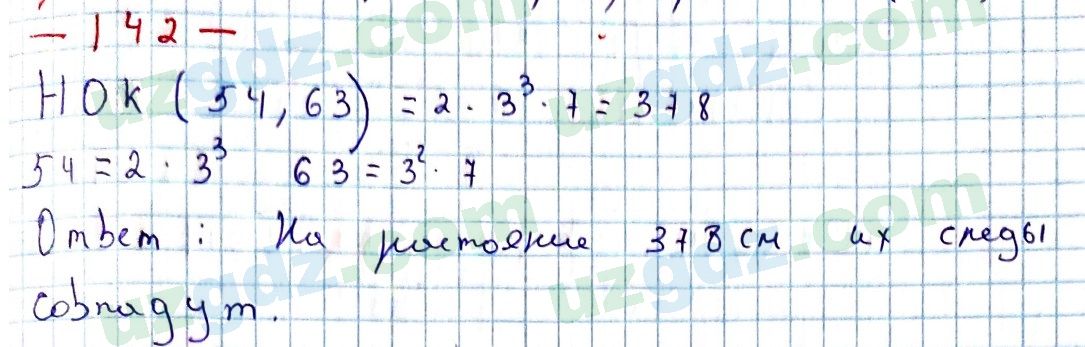 – 142 –
НОК (54, 63) = 2 · 3³ · 7 = 378
54 = 2 · 3³ 63 = 3² · 7
Ответ : На растояние 378 см их следы
совпадут.
uzgdz.com